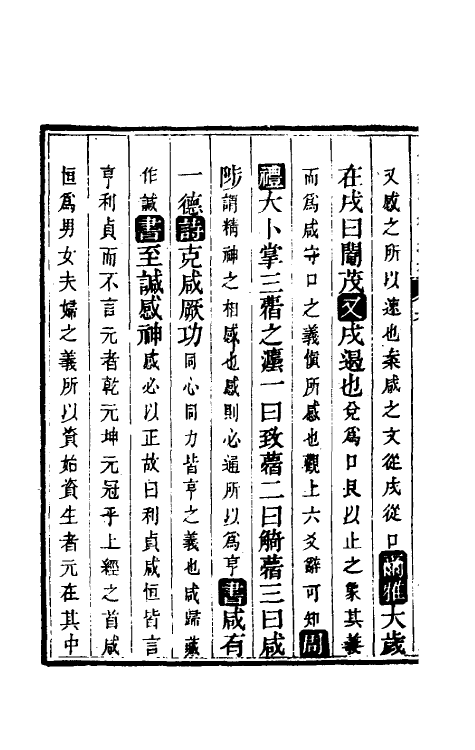 又感之所以速也案咸之文從戌從口爾雅大歲
在戌曰閹茂又戌遏也兌爲口艮以止之象其義
而爲咸守口之義慎所感也觀上六爻辭可知周
禮大卜掌三䔵之灋一曰致䔵二曰觭䔵三曰咸
陟謂精神之相感也感則必通所以爲亨書咸有
一德詩克咸厥功同心同力皆亨之義也咸歸藏
作諴書至諴感神感必以正故曰利貞咸恒皆言
亨利貞而不言元者乾元坤元冠乎上經之首咸
恒爲男女夫婦之義所以資始資生者元在其中